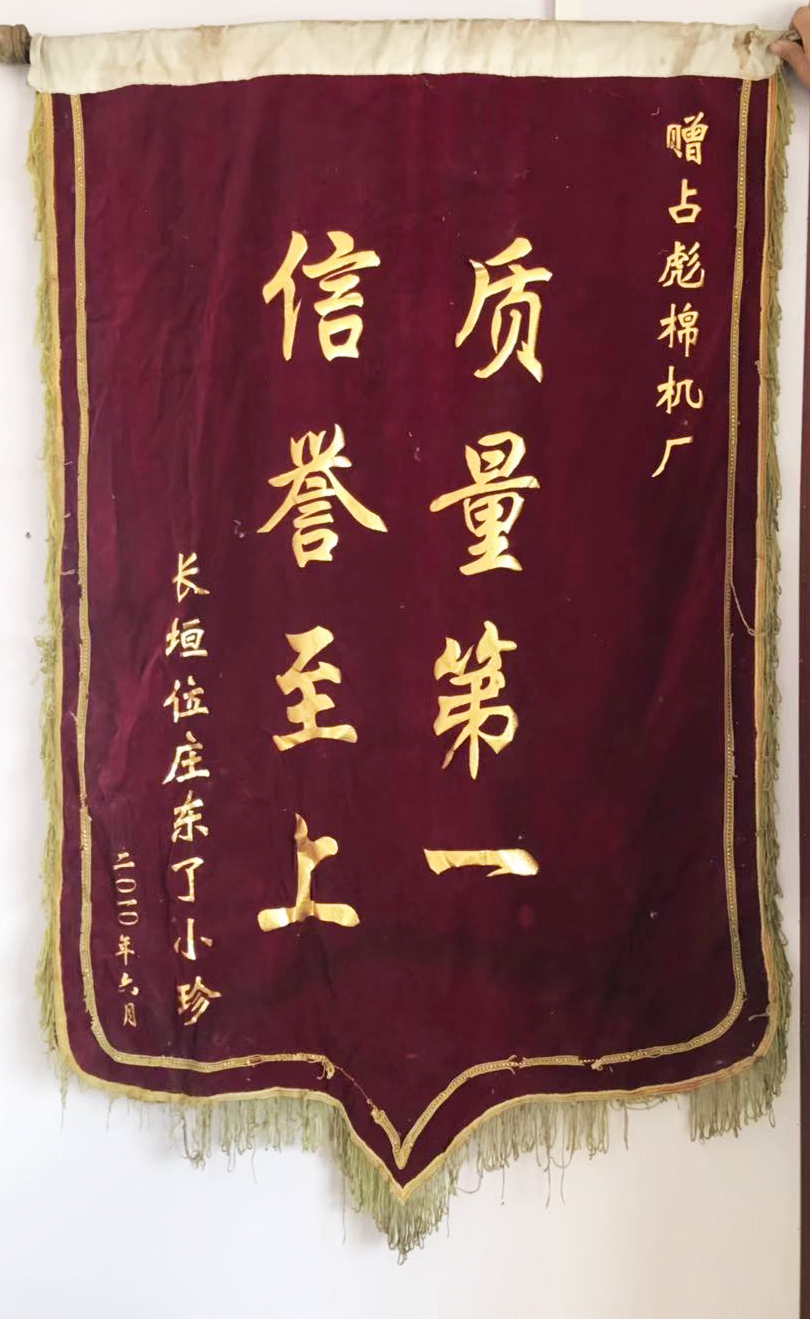 赠占彪棉机厂
质量第一
信誉至上
长垣位庄东了小珍
二〇一〇年六月